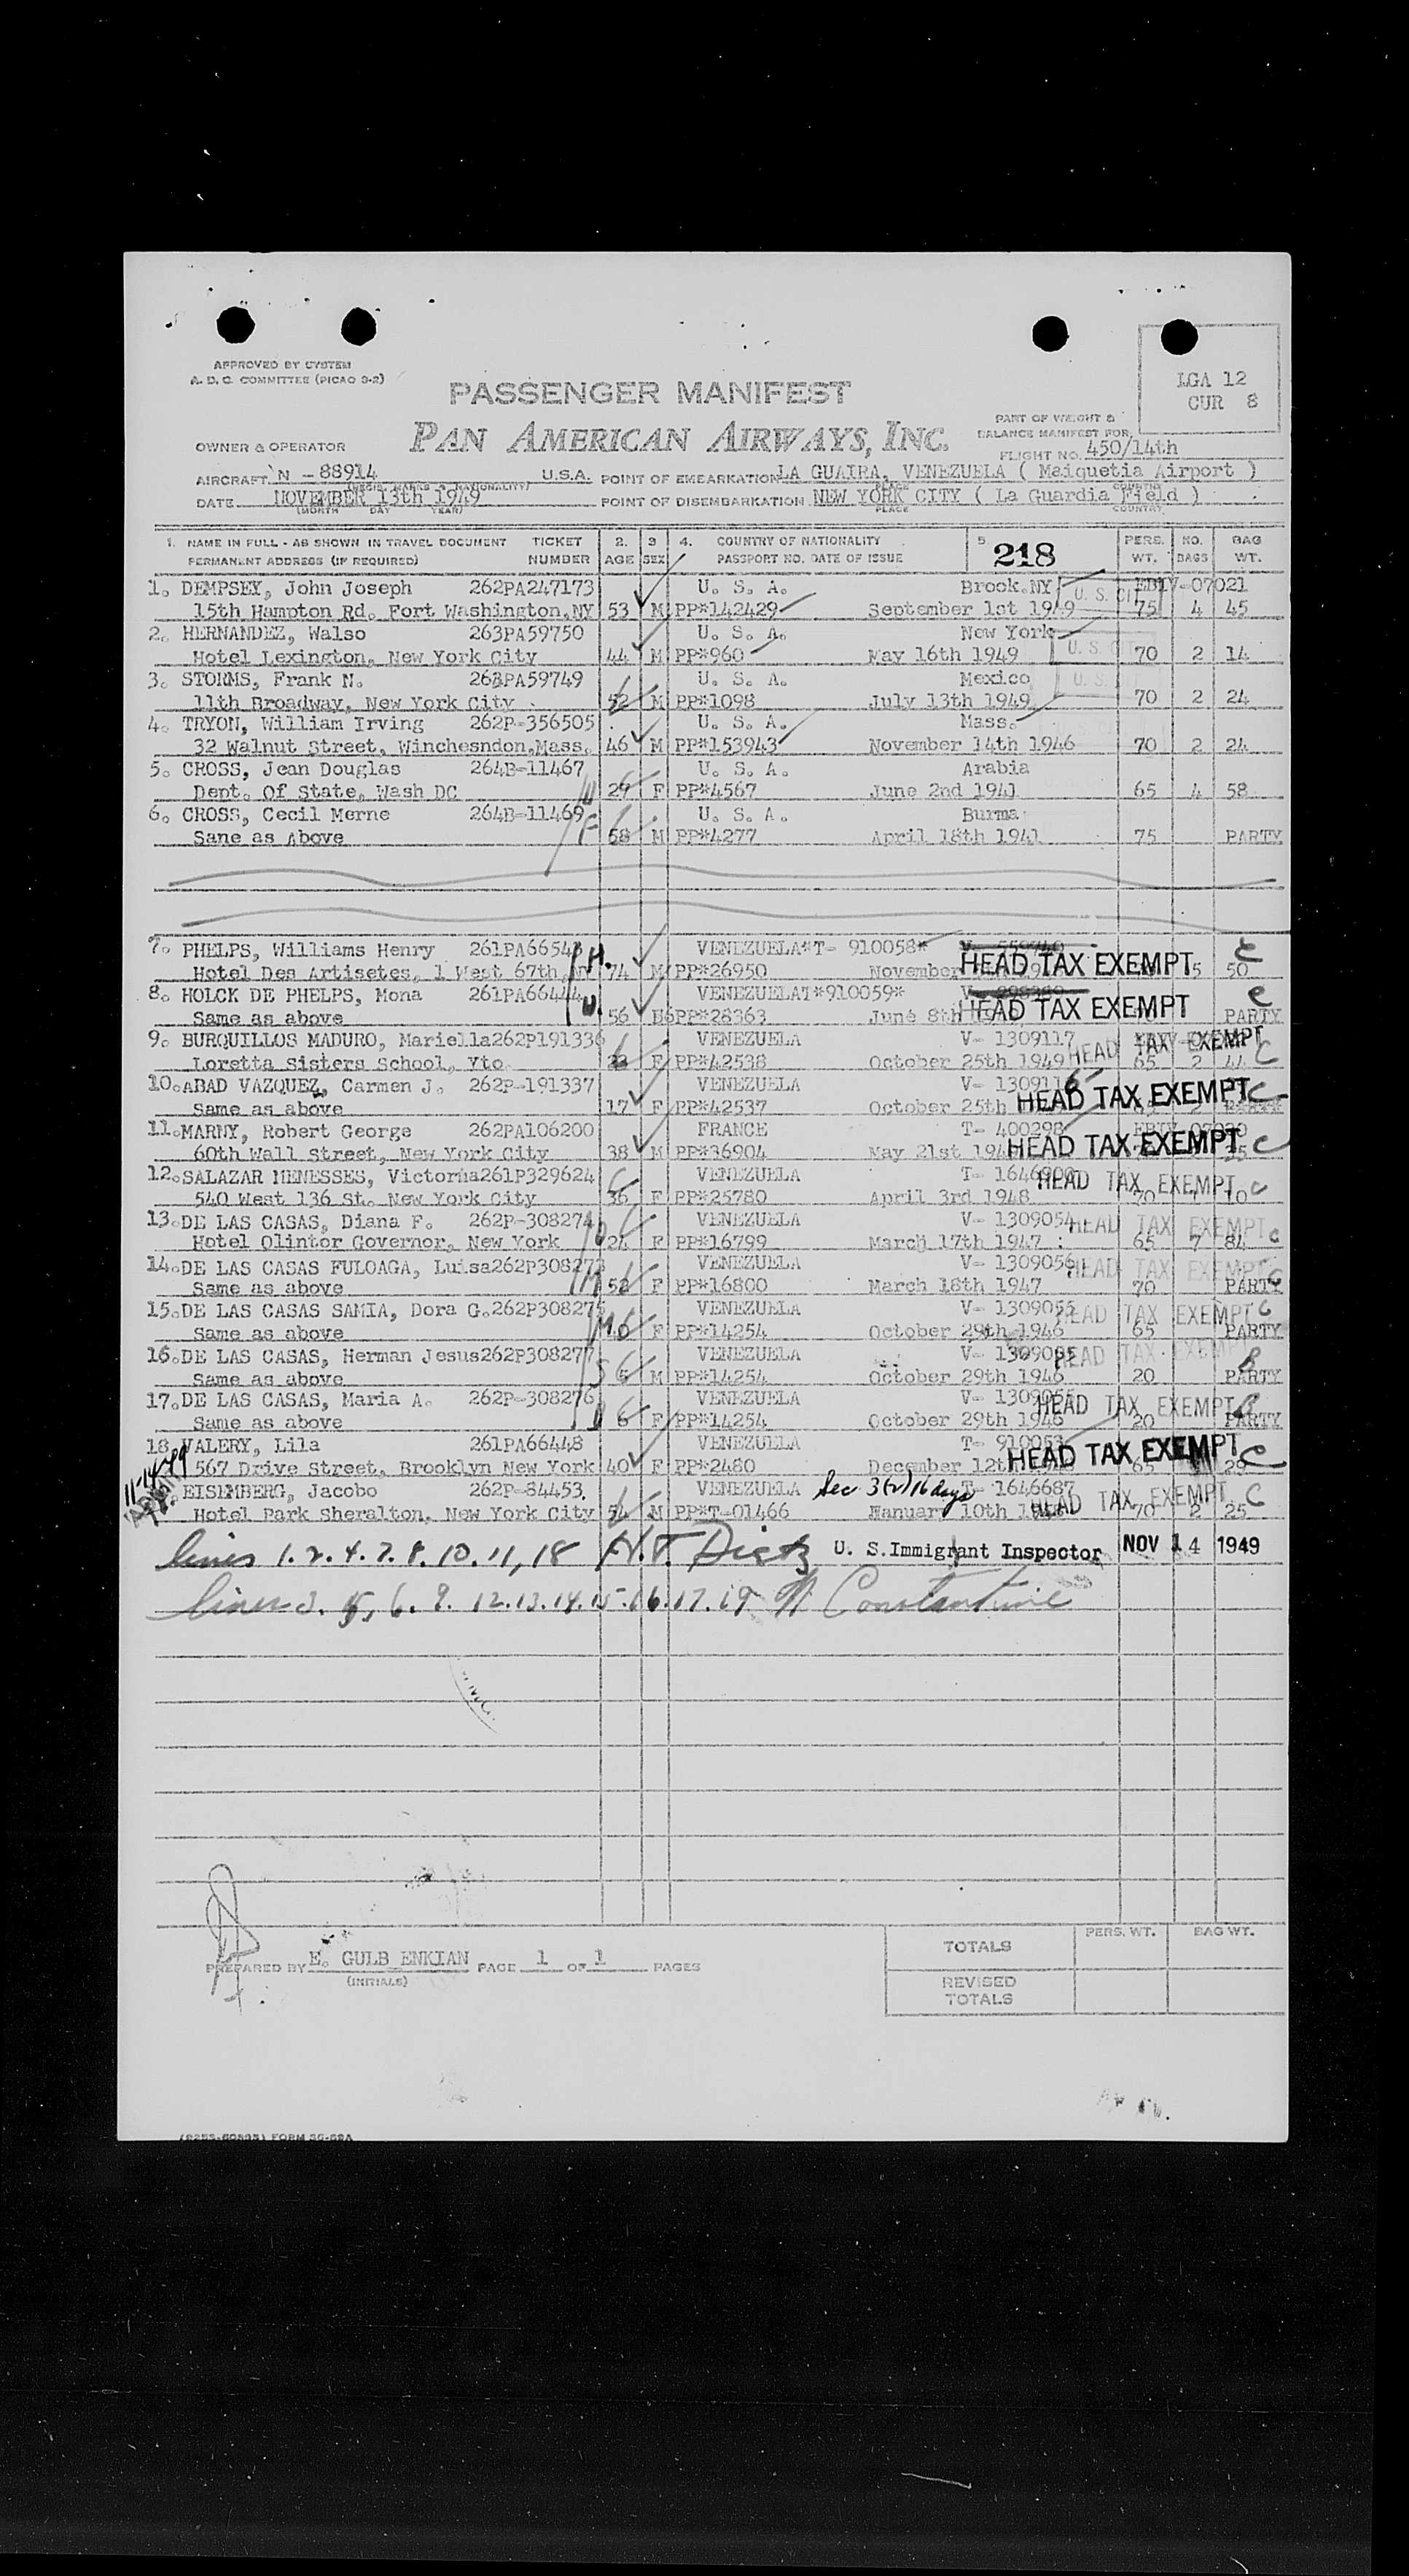 APPROVED BY SYSTEM
A. D. C. COMMITTEE (PICAO 3-2)
LGA 12
CUR 8
PASSENGER MANIFEST
PAN AMERICAN AIRWAYS, INC.
PART OF WEIGHT &
BALANCE MANIFEST FOR
OWNER & OPERATOR
FLIGHT NO. 450/14th
AIRCRAFT N - 88914 U.S.A. POINT OF EMBARKATION LA GUAIRA, VENEZUELA ( Maiquetia Airport )
DATE NOVEMBER 13th 1949 POINT OF DISEMBARKATION NEW YORK CITY ( La Guardia Field )
(MONTH DAY YEAR) PLACE COUNTRY
1. NAME IN FULL - AS SHOWN IN TRAVEL DOCUMENT TICKET 2. 3 4. COUNTRY OF NATIONALITY 5. 218 PERS. NO. BAG
PERMANENT ADDRESS (IF REQUIRED) NUMBER AGE SEX PASSPORT NO. DATE OF ISSUE WT. BAGS WT.
1. DEMPSEY, John Joseph 262PA247173 U. S. A. Brook.NY EBIV-07021
15th Hampton Rd. Fort Washington,NY 53 M PP*142429 September 1st 1949 U. S. CIT 75 4 45
2. HERNANDEZ, Walso 263PA59750 U. S. A. New York
Hotel Lexington, New York City 44 M PP*960 May 16th 1949 U. S. CIT 70 2 14
3. STORMS, Frank N. 263PA59749 U. S. A. Mexico
11th Broadway, New York City 52 M PP*1098 July 13th 1949 U. S. CIT 70 2 24
4. TRYON, William Irving 262P-356505 U. S. A. Mass.
32 Walnut Street, Winchesndon,Mass. 46 M PP*153943 November 14th 1946 70 2 24
5. CROSS, Jean Douglas 264B-11467 U. S. A. Arabia
Dept. Of State, Wash DC W 29 F PP*4567 June 2nd 1941 65 4 58
6. CROSS, Cecil Merne 264B-11469 U. S. A. Burma
Sane as Above 58 M PP*4277 April 18th 1941 75 PARTY
7. PHELPS, Williams Henry 261PA6654 H. VENEZUELA*T- 910058*
Hotel Des Artisetes, 1 West 67th, 74 M PP*26950 November HEAD TAX EXEMPT 5 50 C
8. HOLCK DE PHELPS, Mona 261PA66444 W. VENEZUELAT*910059*
Same as above 56 PP*28363 June 8th HEAD TAX EXEMPT PARTY C
9. BURQUILLOS MADURO, Mariella262P191336 VENEZUELA V- 1309117
Loretta Sisters School, Yto F PP*42538 October 25th 1949 HEAD TAX EXEMPT 65 2 44 C
10.ABAD VAZQUEZ, Carmen J. 262P-191337 VENEZUELA V- 130911
Same as above 17 F PP*42537 October 25th HEAD TAX EXEMPT C
11.MARNY, Robert George 262PA106200 FRANCE T- 400298
60th Wall Street, New York City 38 M PP*36904 May 21st 194 HEAD TAX EXEMPT C
12.SALAZAR MENESSES, Victorna261P329624 VENEZUELA T- 1646900
540 West 136 St. New York City 36 F PP*25780 April 3rd 1948 HEAD TAX EXEMPT 70 10 C
13.DE LAS CASAS, Diana F. 262P-308274 VENEZUELA V- 1309054
Hotel Olintor Governor, New York 24 F PP*16799 Marcj 17th 1947 HEAD TAX EXEMPT 65 7 84 C
14.DE LAS CASAS FULOAGA, Luisa262P308273 VENEZUELA V- 1309056
Same as above M 52 F PP*16800 March 18th 1947 HEAD TAX EXEMPT 70 PARTY C
15.DE LAS CASAS SAMIA, Dora G.262P308275 VENEZUELA V- 1309055
Same as above F PP*14254 October 29th 1946 HEAD TAX EXEMPT 65 PARTY C
16.DE LAS CASAS, Herman Jesus262P308277 VENEZUELA V- 1309055
Same as above S M PP*14254 October 29th 1946 HEAD TAX EXEMPT 20 PARTY B
17.DE LAS CASAS, Maria A. 262P-308276 VENEZUELA V- 1309055
Same as above 6 F PP*14254 October 29th 1946 HEAD TAX EXEMPT 20 PARTY B
18. VALERY, Lila 261PA66448 VENEZUELA T- 910053
567 Drive Street, Brooklyn New York 40 F PP*2480 December 12th HEAD TAX EXEMPT 65 C
11-14-49
EISEMBERG, Jacobo 262P-84453. VENEZUELA Sec 3(2) 16 days T- 1646687
Hotel Park Sheralton, New York City 54 M PP*T-01466 Nanuary 10th HEAD TAX EXEMPT 70 2 25 C
lines 1. 2. 4. 7. 8. 10. 11, 18 H.T. Dietz U. S. Immigrant Inspector NOV 14 1949
lines 3. 5, 6. 9. 12. 13. 14. 15. 16. 17. 19 M Constantine
PREPARED BY E. GULB ENKIAN PAGE 1 OF 1 PAGES
(INITIALS)
PERS. WT. BAG WT.
TOTALS
REVISED
TOTALS